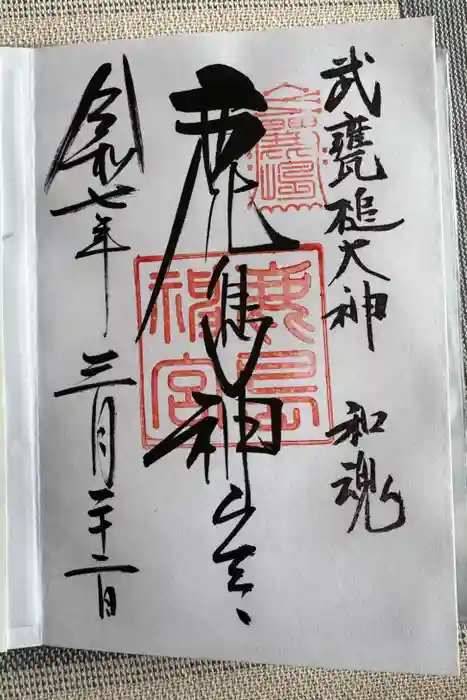 武甕槌大神　和魂
鹿嶋神宮
令和七年　三月二十二日
鹿島
神宮